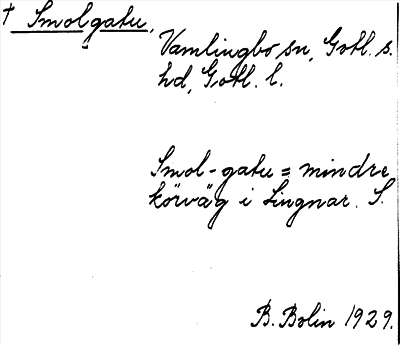 † Smolgatu,
Vamlingbo sn, Gotl. s.
hd, Gotl. l.
Smol-gatu = mindre
körväg i Lingnar. S.
B. Bolin 1929.